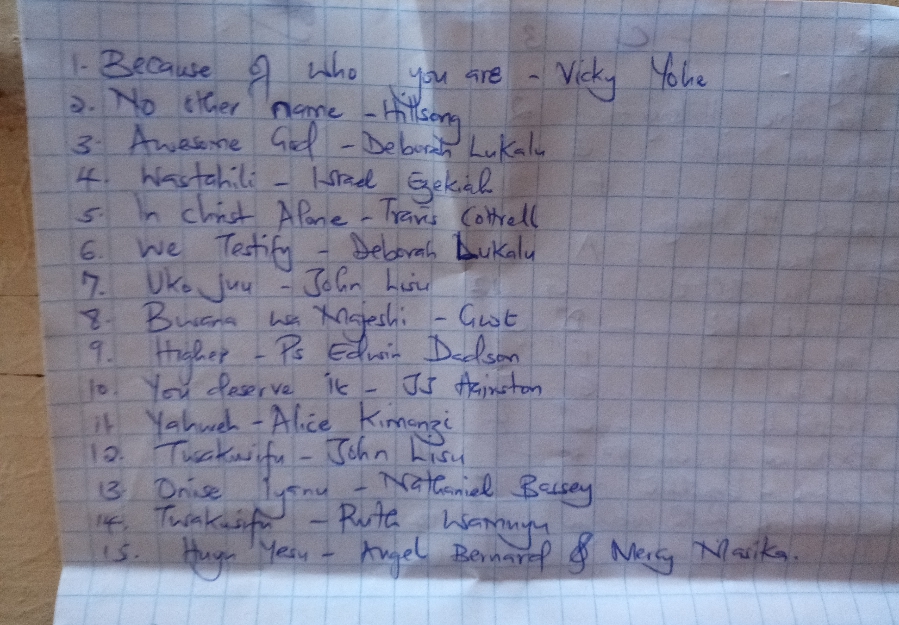 1. Because of who you are - Vicky Yohe
2. No other name - Hillsong
3. Awesome God - Deborah Lukalu
4. Wastahili - Israel Ezekiah
5. In Christ Alone - Travis Cottrell
6. We Testify - Deborah Lukalu
7. Uko Juu - John Lisu
8. Bwana wa Majeshi - Gwst
9. Higher - Ps Edwin Dadson
10. You deserve it - JJ Hairston
11. Yahweh - Alice Kimanzi
12. Tusakwifu - John Lisu
13. Onise Iyanu - Nathaniel Bassey
14. Twakusifu - Ruth Wamuyu
15. Huyu Yesu - Angel Bernard & Mercy Masika.